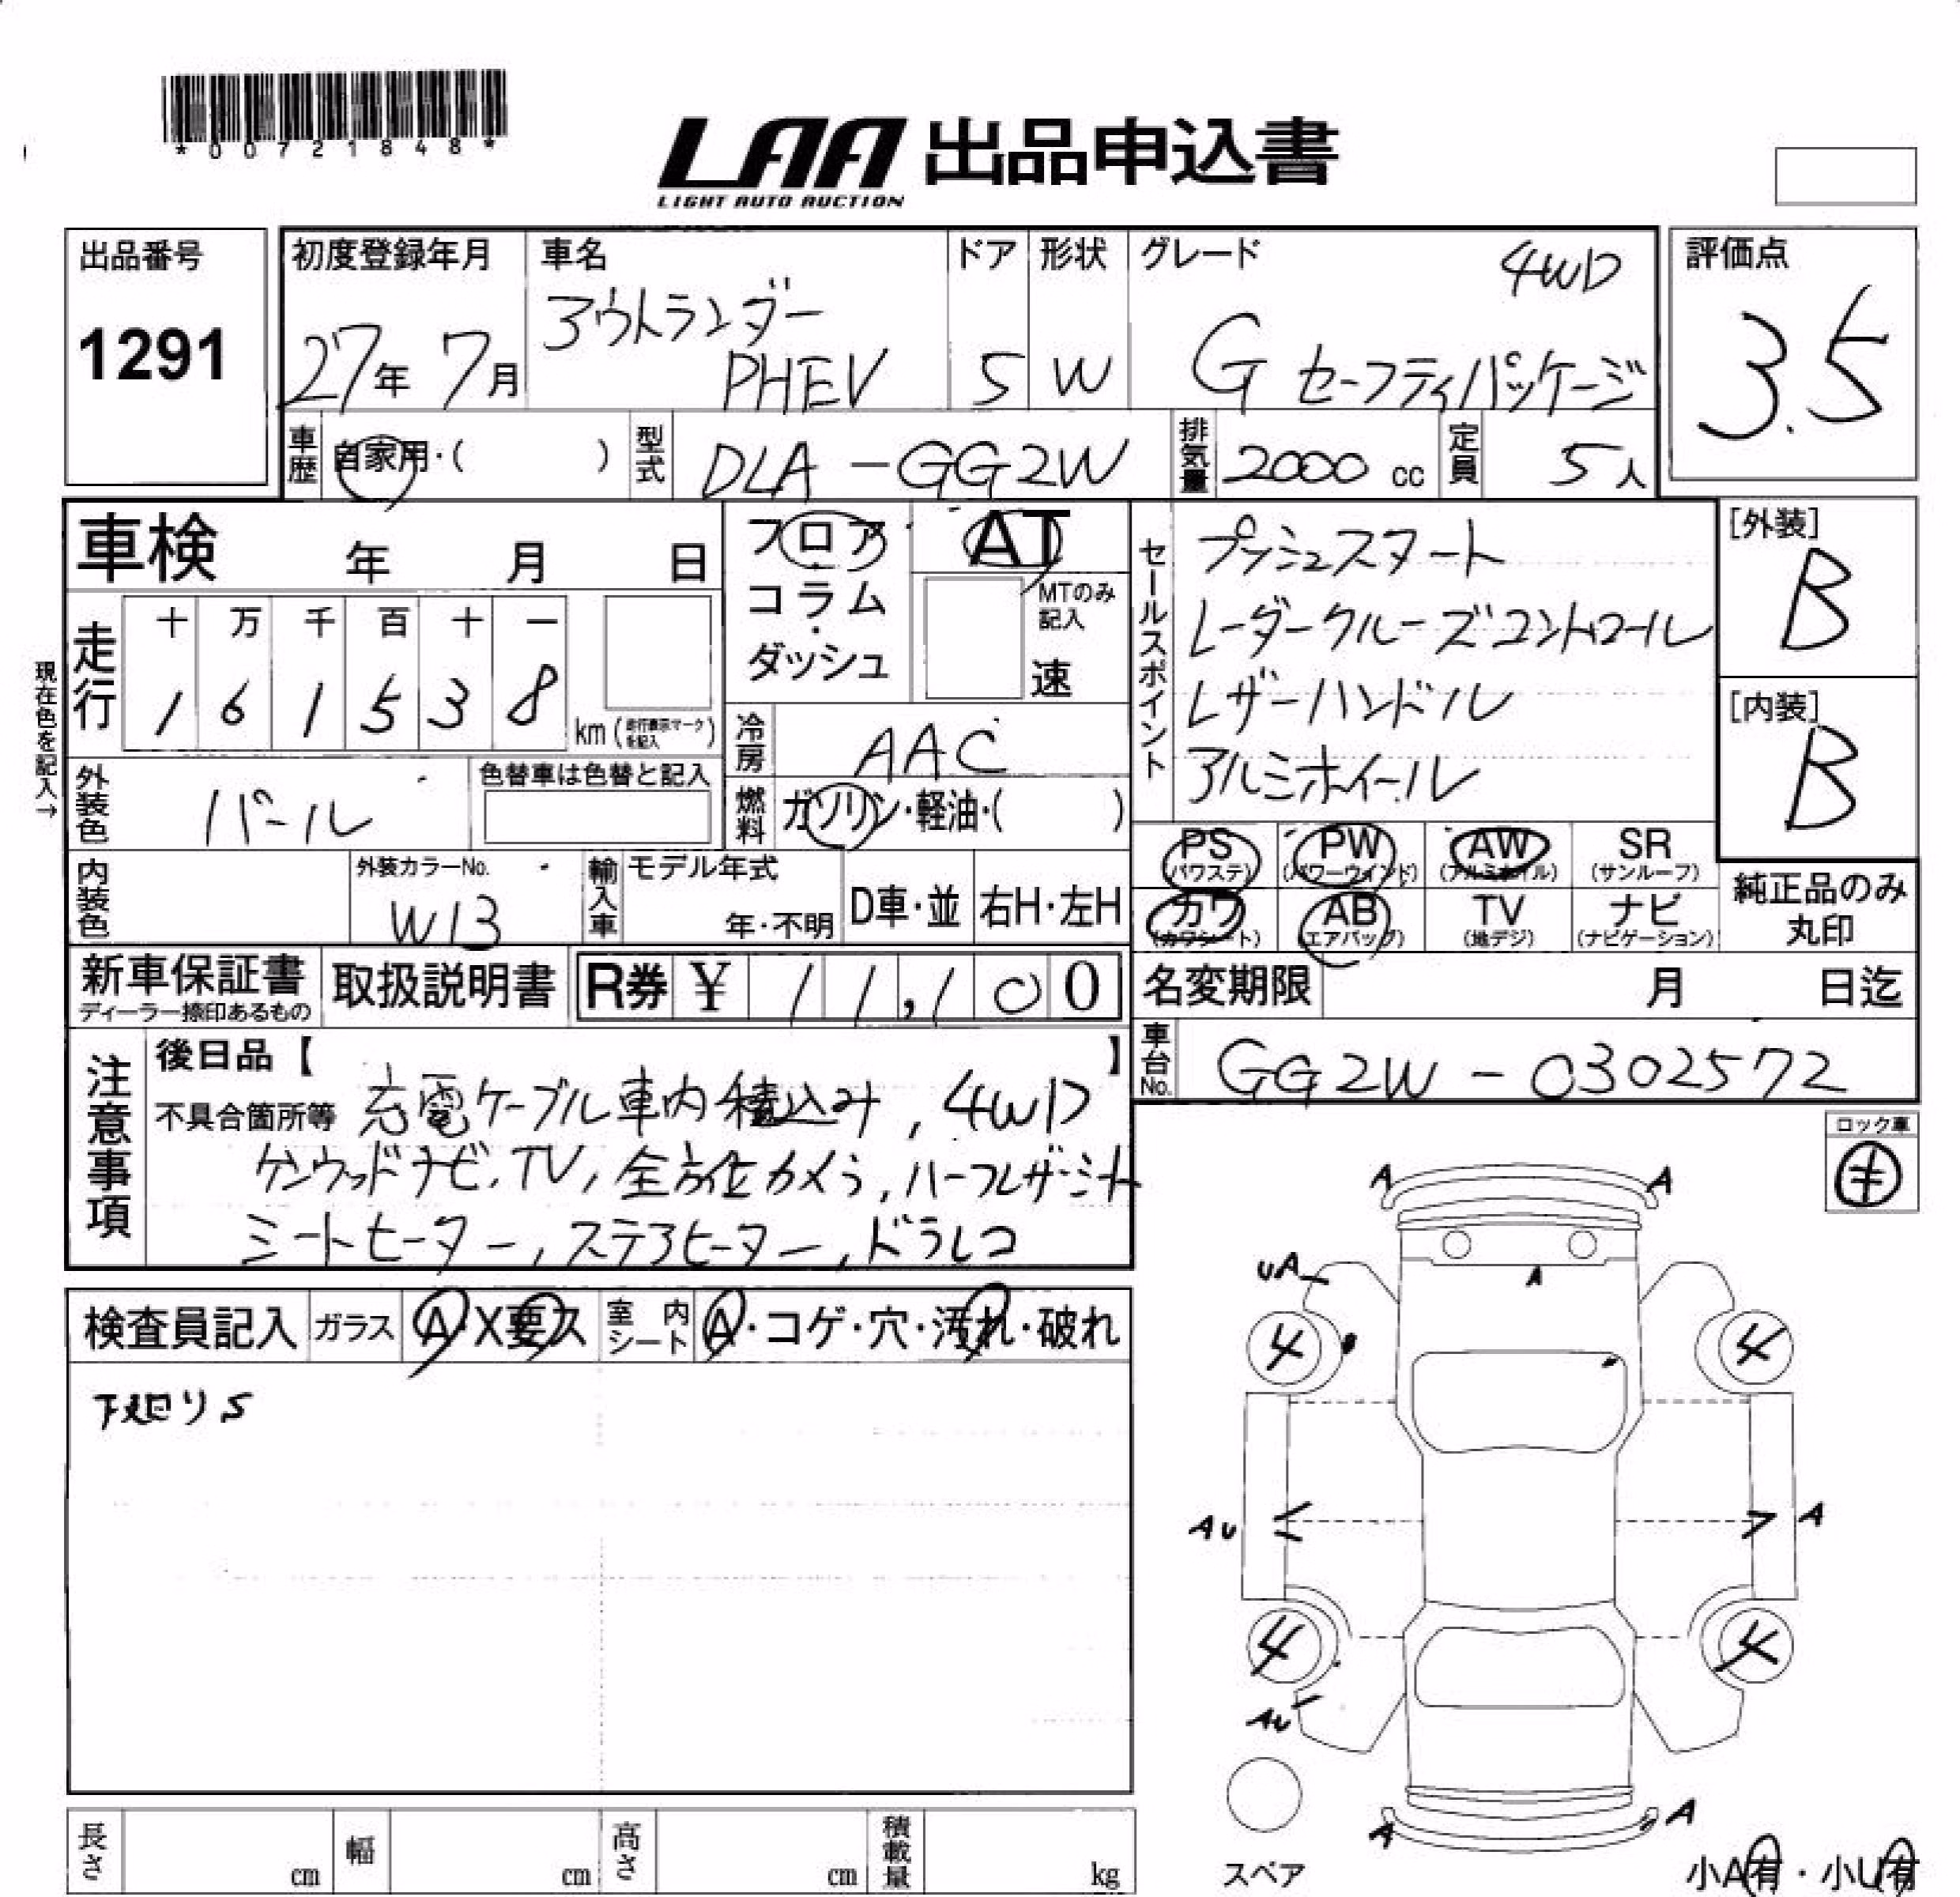 *00721848*
LAA 出品申込書
LIGHT AUTO AUCTION
出品番号
1291
初度登録年月
27年 7月
車名
アウトランダー
PHEV
ドア
5
形状
W
グレード
4WD
G セーフティパッケージ
評価点
3.5
車歴
自家用・( )
型式
DLA-GG2W
排気量
2000 cc
定員
5人
車検 年 月 日
フロア・コラム・ダッシュ
AT
MTのみ記入
速
セールスポイント
プッシュスタート
レーダークルーズコントロール
レザーハンドル
アルミホイール
[外装]
B
[内装]
B
現在色を記入→
走行
十 万 千 百 十 一
1 6 1 5 3 8
km (走行表示マークを記入)
冷房
AAC
外装色
パール
色替車は色替と記入
燃料
ガソリン・軽油・( )
PS (パワステ)
PW (パワーウインド)
AW (アルミホイル)
SR (サンルーフ)
カワ (カワシート)
AB (エアバッグ)
TV (地デジ)
ナビ (ナビゲーション)
純正品のみ丸印
内装色
外装カラーNo.
W13
輸入車
モデル年式
年・不明
D車・並
右H・左H
新車保証書
ディーラー捺印あるもの
取扱説明書
R券 ¥ 11,100
名変期限 月 日迄
車台No.
GG2W-0302572
注意事項
後日品【 】
不具合箇所等 充電ケーブル車内積込み, 4WD
ケンウッドナビ, TV, 全方位カメラ, ハーフレザーシート
シートヒーター, ステアヒーター, ドラレコ
ロック車
キ
検査員記入
ガラス A・X要ス
室内シート A・コゲ・穴・汚れ・破れ
下廻りS
A A
UA
A
4 4
AU A
4 4
AU
A A
スペア
長さ cm
幅 cm
高さ cm
積載量 kg
小A有・小U有